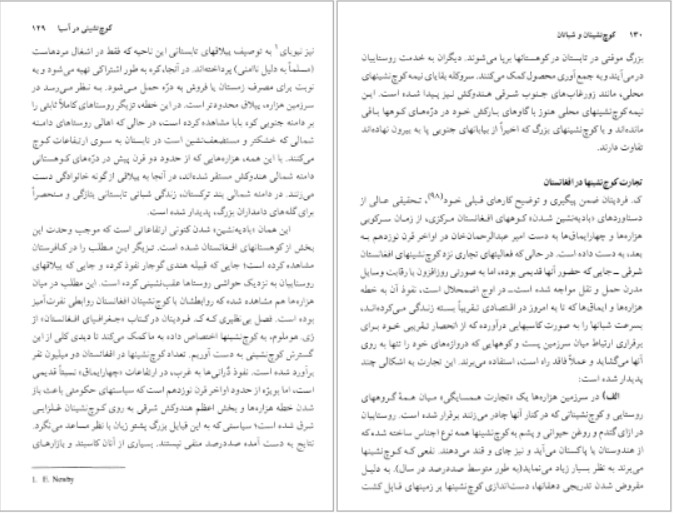 کوچ‌نشینی در آسیا ۱۲۹
نیز نیوبای ۱ به توصیف ییلاقهای تابستانی این ناحیه که فقط در اشغال مردهاست
(مسلماً به دلیل ناامنی) پرداخته‌اند. در آنجا، کره به طور اشتراکی تهیه می‌شود و به
نوبت برای مصرف زمستان یا فروش به درّه حمل می‌شود. به نظر می‌رسد در
سرزمین هزاره، ییلاق محدودتر است. در این خطه، تزیگر روستاهای کاملاً ثابتی را
بر دامنه جنوبی کوه بابا مشاهده کرده است، در حالی که اهالی روستاهای دامنه
شمالی که خشکتر و مستضعف‌نشین است در تابستان به سوی ارتفاعات کوچ
می‌کنند. با این همه، هزاره‌هایی که از حدود دو قرن پیش در درّه‌های کوهستانی
دامنه شمالی هندوکش مستقر شده‌اند، در آنجا به ییلاقی ازگونه خانوادگی دست
می‌زنند. در دامنه شمالی بند ترکستان، زندگی شبانی تابستانی بتازگی و منحصراً
برای گله‌های دامداران بزرگ، پدیدار شده است.
این همان «بادیه‌نشین» شدن کنونی ارتفاعاتی است که موجب وحدت این
بخش از کوهستانهای افغانستان شده است. تزیگر این مطلب را در کافرستان
مشاهده کرده است؛ جایی که قبیله هندی گوجار نفوذ کرده، و جایی که ییلاقهای
روستاییان به نزدیک حواشی روستاها عقب‌نشینی کرده است. این مطلب در میان
هزاره‌ها هم مشاهده شده که روابطشان با کوچ‌نشینان افغانستان روابطی نفرت‌آمیز
بوده است. فصل بی‌نظیری که ک. فردینان در کتاب «جغرافیای افغانستان» از
زی. هوملوم، به کوچ‌نشینها اختصاص داده به ما کمک می‌کند تا دیدی کلی از این
گسترش کوچ‌نشینی به دست آوریم. تعداد کوچ‌نشینها در افغانستان دو میلیون نفر
برآورد شده است. نفوذ دُرّانی‌ها به غرب، در ارتفاعات «چهارایماق» نسبتاً قدیمی
است، اما بویژه از حدود اواخر قرن نوزدهم است که سیاستهای حکومتی باعث باز
شدن خطه هزاره‌ها و بخش اعظم هندوکش شرقی به روی کوچ‌نشینان غلزایی
شرق شده است؛ سیاستی که به این قبایل بزرگ پشتو زبان با نظر مساعد می‌نگرد.
نتایج به دست آمده صددرصد منفی نیستند. بسیاری از آنان کاسبند و بازارهای
1. E. Newby
۱۳۰ کوچ‌نشینان و شبانان
بزرگ موقتی در تابستان در کوهستانها برپا می‌شوند. دیگران به خدمت روستاییان
در می‌آیند و به جمع‌آوری محصول کمک می‌کنند. سروکله بقایای نیمه کوچ‌نشینهای
محلی، مانند زورغاب‌های جنوب شرقی هندوکش نیز پیدا شده است. این
نیمه‌کوچ‌نشینهای محلی هنوز با گاوهای بارکش خود در درّه‌های کوهها باقی
مانده‌اند و با کوچ‌نشینهای بزرگ که اخیراً از بیابانهای جنوبی پا به بیرون نهاده‌اند
تفاوت دارند.
تجارت کوچ‌نشینها در افغانستان
ک. فردینان ضمن پیگیری و توضیح کارهای قبلی خود(۹۸)، تحقیقی عالی از
دستاوردهای «بادیه‌نشین شدن» کوههای افغانستان مرکزی، از زمان سرکوبی
هزاره‌ها و چهارایماق‌ها به دست امیر عبدالرحمان‌خان در اواخر قرن نوزدهم به
بعد، به دست داده است. در حالی که فعالیتهای تجاری نزد کوچ‌نشینهای افغانستان
شرقی ـ جایی که حضور آنها قدیمی بوده، اما به صورتی روزافزون با رقابت وسایل
مدرن حمل و نقل مواجه شده است ـ در اوج اضمحلال است، نفوذ آن به خطه
هزاره‌ها و ایماق‌ها که تا به امروز در اقتصادی تقریباً بسته زندگی می‌کرده‌اند،
بسرعت شبانها را به صورت کاسبهایی درآورده که از انحصار تقریبی خود برای
برقراری ارتباط میان سرزمین پست و کوههایی که دروازه‌های خود را تنها به روی
آنها می‌گشاید و عملاً فاقد راه است، استفاده می‌برند. این تجارت به اشکالی چند
پدیدار شده است:
الف) در سرزمین هزاره‌ها یک «تجارت همسایگی» میان همهٔ گروههای
روستایی و کوچ‌نشینانی که در کنار آنها چادر می‌زنند برقرار شده است. روستاییان
در ازای گندم و روغن حیوانی و پشم به کوچ‌نشینها همه نوع اجناس ساخته شده که
از هندوستان یا پاکستان می‌آید و نیز چای و قند می‌دهند. نفعی که کوچ‌نشینها
می‌برند به نظر بسیار زیاد می‌نماید (به طور متوسط صددرصد در سال). به دلیل
مقروض شدن تدریجی دهقانها، دست‌اندازی کوچ‌نشینها بر زمینهای قابل کشت